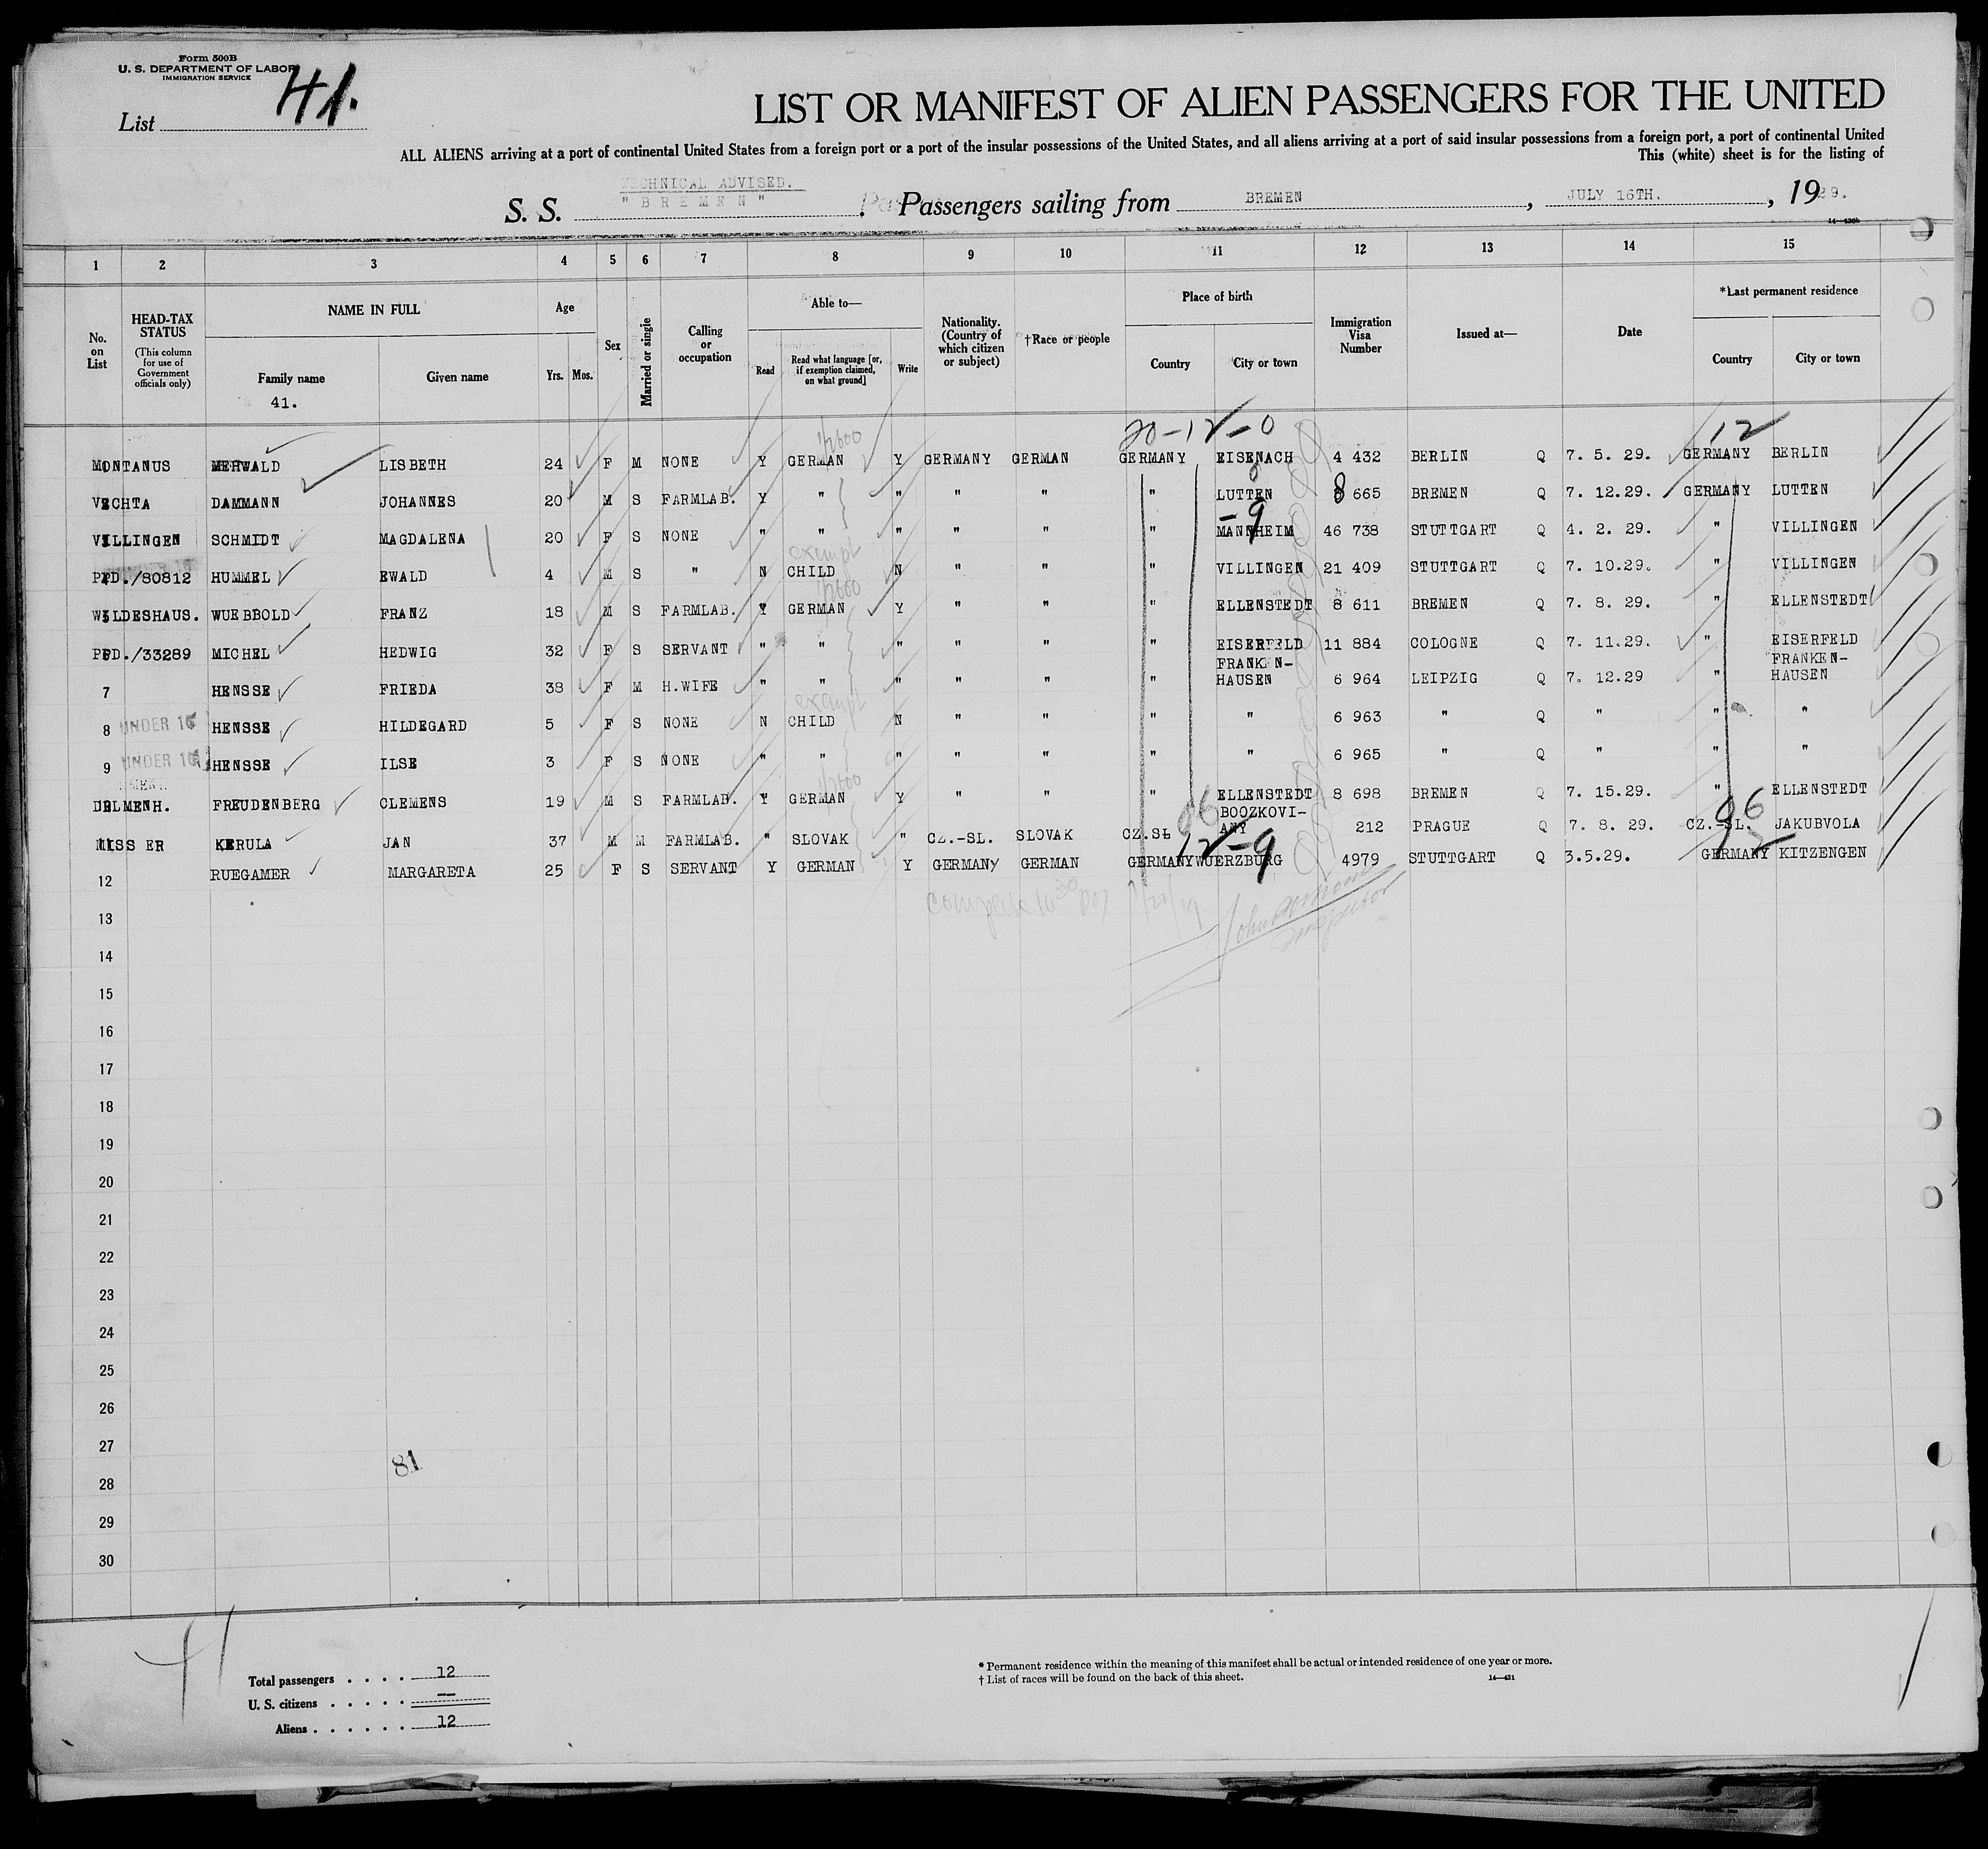 Form 500B
U. S. DEPARTMENT OF LABOR
IMMIGRATION SERVICE
List 41.
LIST OR MANIFEST OF ALIEN PASSENGERS FOR THE UNITED
ALL ALIENS arriving at a port of continental United States from a foreign port or a port of the insular possessions of the United States, and all aliens arriving at a port of said insular possessions from a foreign port, a port of continental United
This (white) sheet is for the listing of
TECHNICAL ADVISED.
S. S. "BREMEN" Passengers sailing from BREMEN, JULY 16TH., 1929.
1 2 3 4 5 6 7 8 9 10 11 12 13 14 15
No. on List
HEAD-TAX STATUS (This column for use of Government officials only)
NAME IN FULL Family name Given name
41.
Age Yrs. Mos.
Sex
Married or single
Calling or occupation
Able to— Read Read what language [or, if exemption claimed, on what ground] Write
Nationality. (Country of which citizen or subject)
†Race or people
Place of birth Country City or town
Immigration Visa Number
Issued at—
Date
*Last permanent residence Country City or town
20-12-0 12
MONTANUS MERWALD LISBETH 24 F M NONE Y GERMAN Y GERMANY GERMAN GERMANY EISENACH 4 432 BERLIN Q 7. 5. 29. GERMANY BERLIN
VECHTA DAMMANN JOHANNES 20 M S FARMLAB. Y " " " " " LUTTEN 8 665 BREMEN Q 7. 12.29. GERMANY LUTTEN
-9
VILLINGEN SCHMIDT MAGDALENA 20 F S NONE " " " " " " MANNHEIM 46 738 STUTTGART Q 4. 2. 29. " VILLINGEN
exempt
PPD./80812 HUMMEL EWALD 4 M S " N CHILD N " " " VILLINGEN 21 409 STUTTGART Q 7. 10.29. " VILLINGEN
WILDESHAUS. WUEBBOLD FRANZ 18 M S FARMLAB. Y GERMAN Y " " " ELLENSTEDT 8 611 BREMEN Q 7. 8. 29. " ELLENSTEDT
PPD./33289 MICHEL HEDWIG 32 F S SERVANT " " " " " " EISERFELD 11 884 COLOGNE Q 7. 11.29. " EISERFELD
7 HENSSE FRIEDA 38 F M H.WIFE " " " " " " FRANKEN-HAUSEN 6 964 LEIPZIG Q 7. 12.29 " FRANKEN-HAUSEN
exempt
8 UNDER 16 HENSSE HILDEGARD 5 F S NONE N CHILD N " " " " 6 963 " Q " " "
9 UNDER 16 HENSSE ILSE 3 F S NONE " " " " " " " 6 965 " Q " " "
DELMENH. FREUDENBERG CLEMENS 19 M S FARMLAB. Y GERMAN Y " " " ELLENSTEDT 8 698 BREMEN Q 7. 15.29. " ELLENSTEDT
96 96
MISSER KERULA JAN 37 M M FARMLAB. " SLOVAK " CZ.-SL. SLOVAK CZ.SL BOOZKOVI-ANY 212 PRAGUE Q 7. 8. 29. CZ.-SL. JAKUBVOLA
12-9
12 RUEGAMER MARGARETA 25 F S SERVANT Y GERMAN Y GERMANY GERMAN GERMANY WUERZBURG 4979 STUTTGART Q 3.5.29. GERMANY KITZENGEN
13
14
15
16
17
18
19
20
21
22
23
24
25
26
27
81
28
29
30
41
Total passengers . . . . 12
U. S. citizens . . . . . —
Aliens . . . . . . 12
* Permanent residence within the meaning of this manifest shall be actual or intended residence of one year or more.
† List of races will be found on the back of this sheet.
14—431